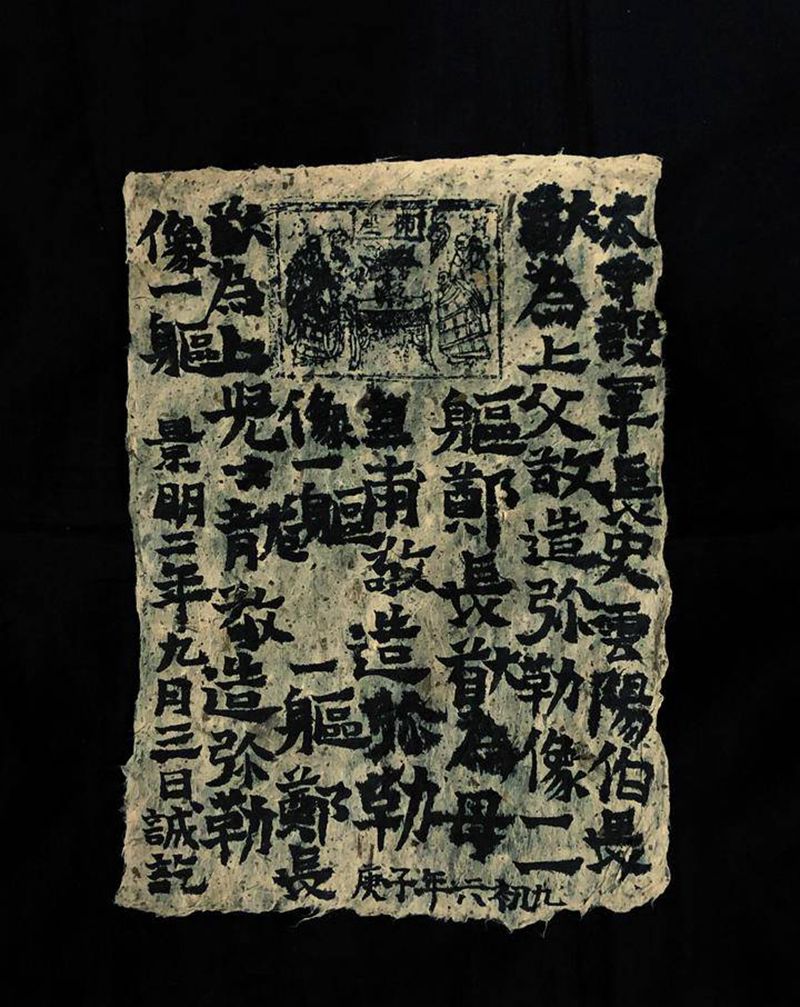 太守設軍長史雲陽伯長
猷為亡父敬造弥勒像二
軀鄭長猷為母
皇甫敬造弥勒
像一軀 一軀鄭長
猷為亡兒士龍敬造弥勒
像一軀 景明二年九月三日誠訖
庚子年六初九